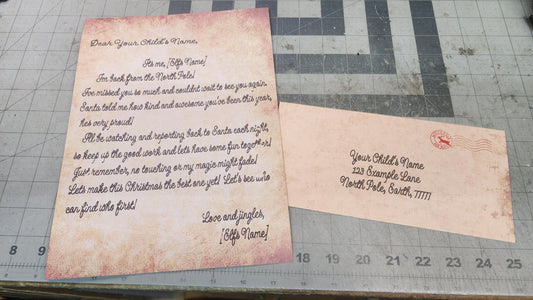 Dear Your Child's Name,
Its me, [Elfs Name]
I'm back from the North Pole!
I've missed you so much and couldnt wait to see you again.
Santa told me how kind and awesome you've been this year,
hes very proud!
I'll be watching and reporting back to Santa each night,
so keep up the good work and lets have some fun together!
Just remember, no touching or my magic might fade!
Let's make this Christmas the best one yet! Let's see who
can find who first!
Love and jingles,
[Elfs Name]
Your Child's Name
123 Example Lane
North Pole, Earth, 77777
8 9 10 11 12 13 14 15 16 17 18 19 20 21 22 23 24 25